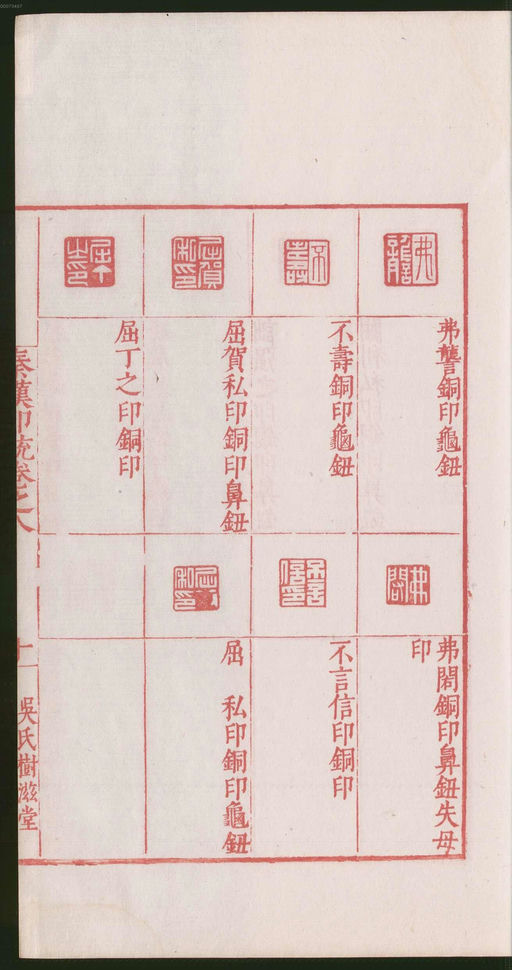 弗讋銅印龜鈕
不壽銅印龜鈕
屈賀私印銅印鼻鈕
屈丁之印銅印
弗閎銅印鼻鈕失母
印
不言信印銅印
屈 私印銅印龜鈕
秦漢印統卷之八
十一
吳氏樹滋堂
00073467